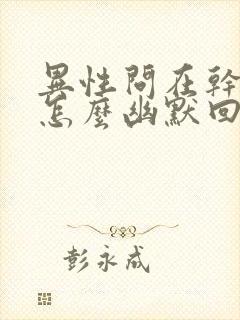 異性問在幹
怎麼幽默回
彭永成